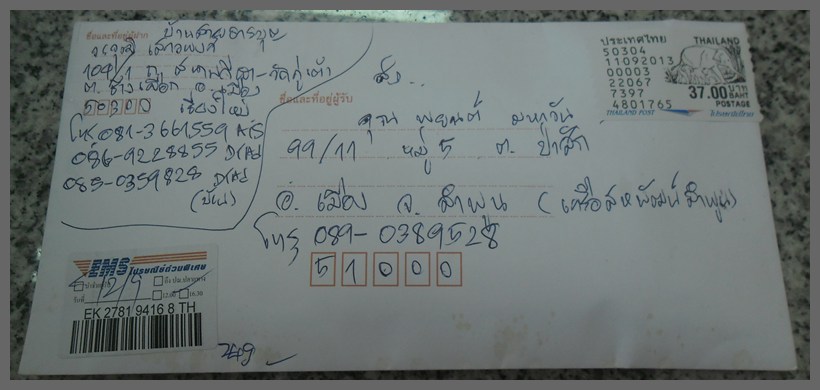 ชื่อและที่อยู่ผู้ฝาก
109/1 ถ. สนามกีฬา-วัดกู่เต้า
ต. ช้างเผือก อ. เมือง
50300 เชียงใหม่
โทร 081-3661559 AIS
086-9228855 DTAC
085-0359828 DTAC
(บ้าน)
ส่ง
ชื่อและที่อยู่ผู้รับ
คุณ
99/11 หมู่ 5 ต. ป่าสัก
อ. เมือง จ. ลำพูน (เครือสหพัฒน์ลำพูน)
โทร 089-0389528
51000
ประเทศไทย
50304
11092013
00003
22067
7397
4801765
THAILAND
37.00 บาท
BAHT
POSTAGE
THAILAND POST
ไปรษณีย์ไทย
EMS ไปรษณีย์ด่วนพิเศษ
วันที่
12.00
16.30
EK 2781 9416 8 TH